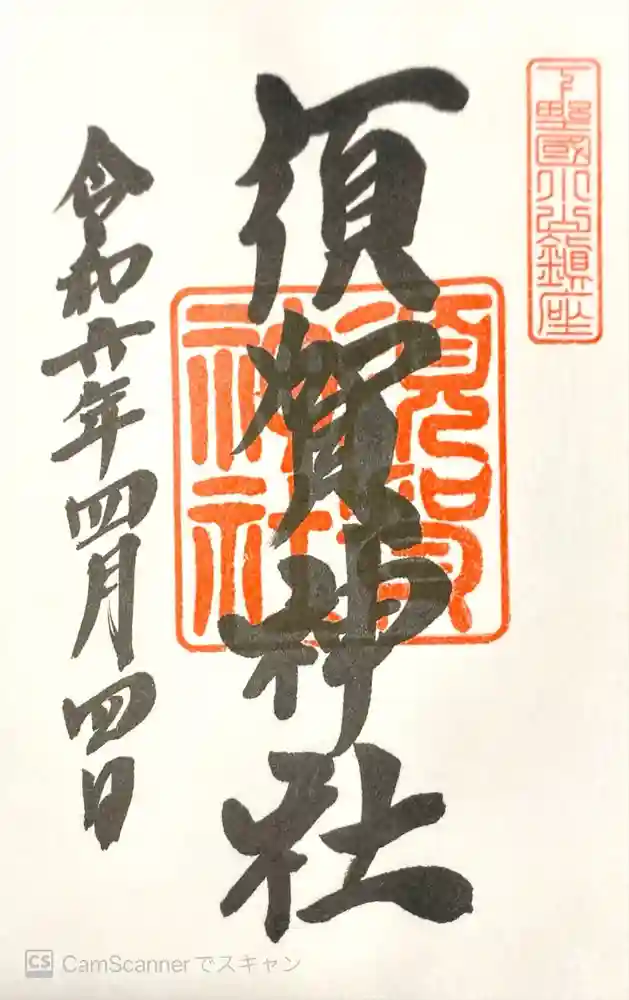 下野國小山鎮座
須賀神社
須賀
神社
令和六年四月四日
CS CamScannerでスキャン